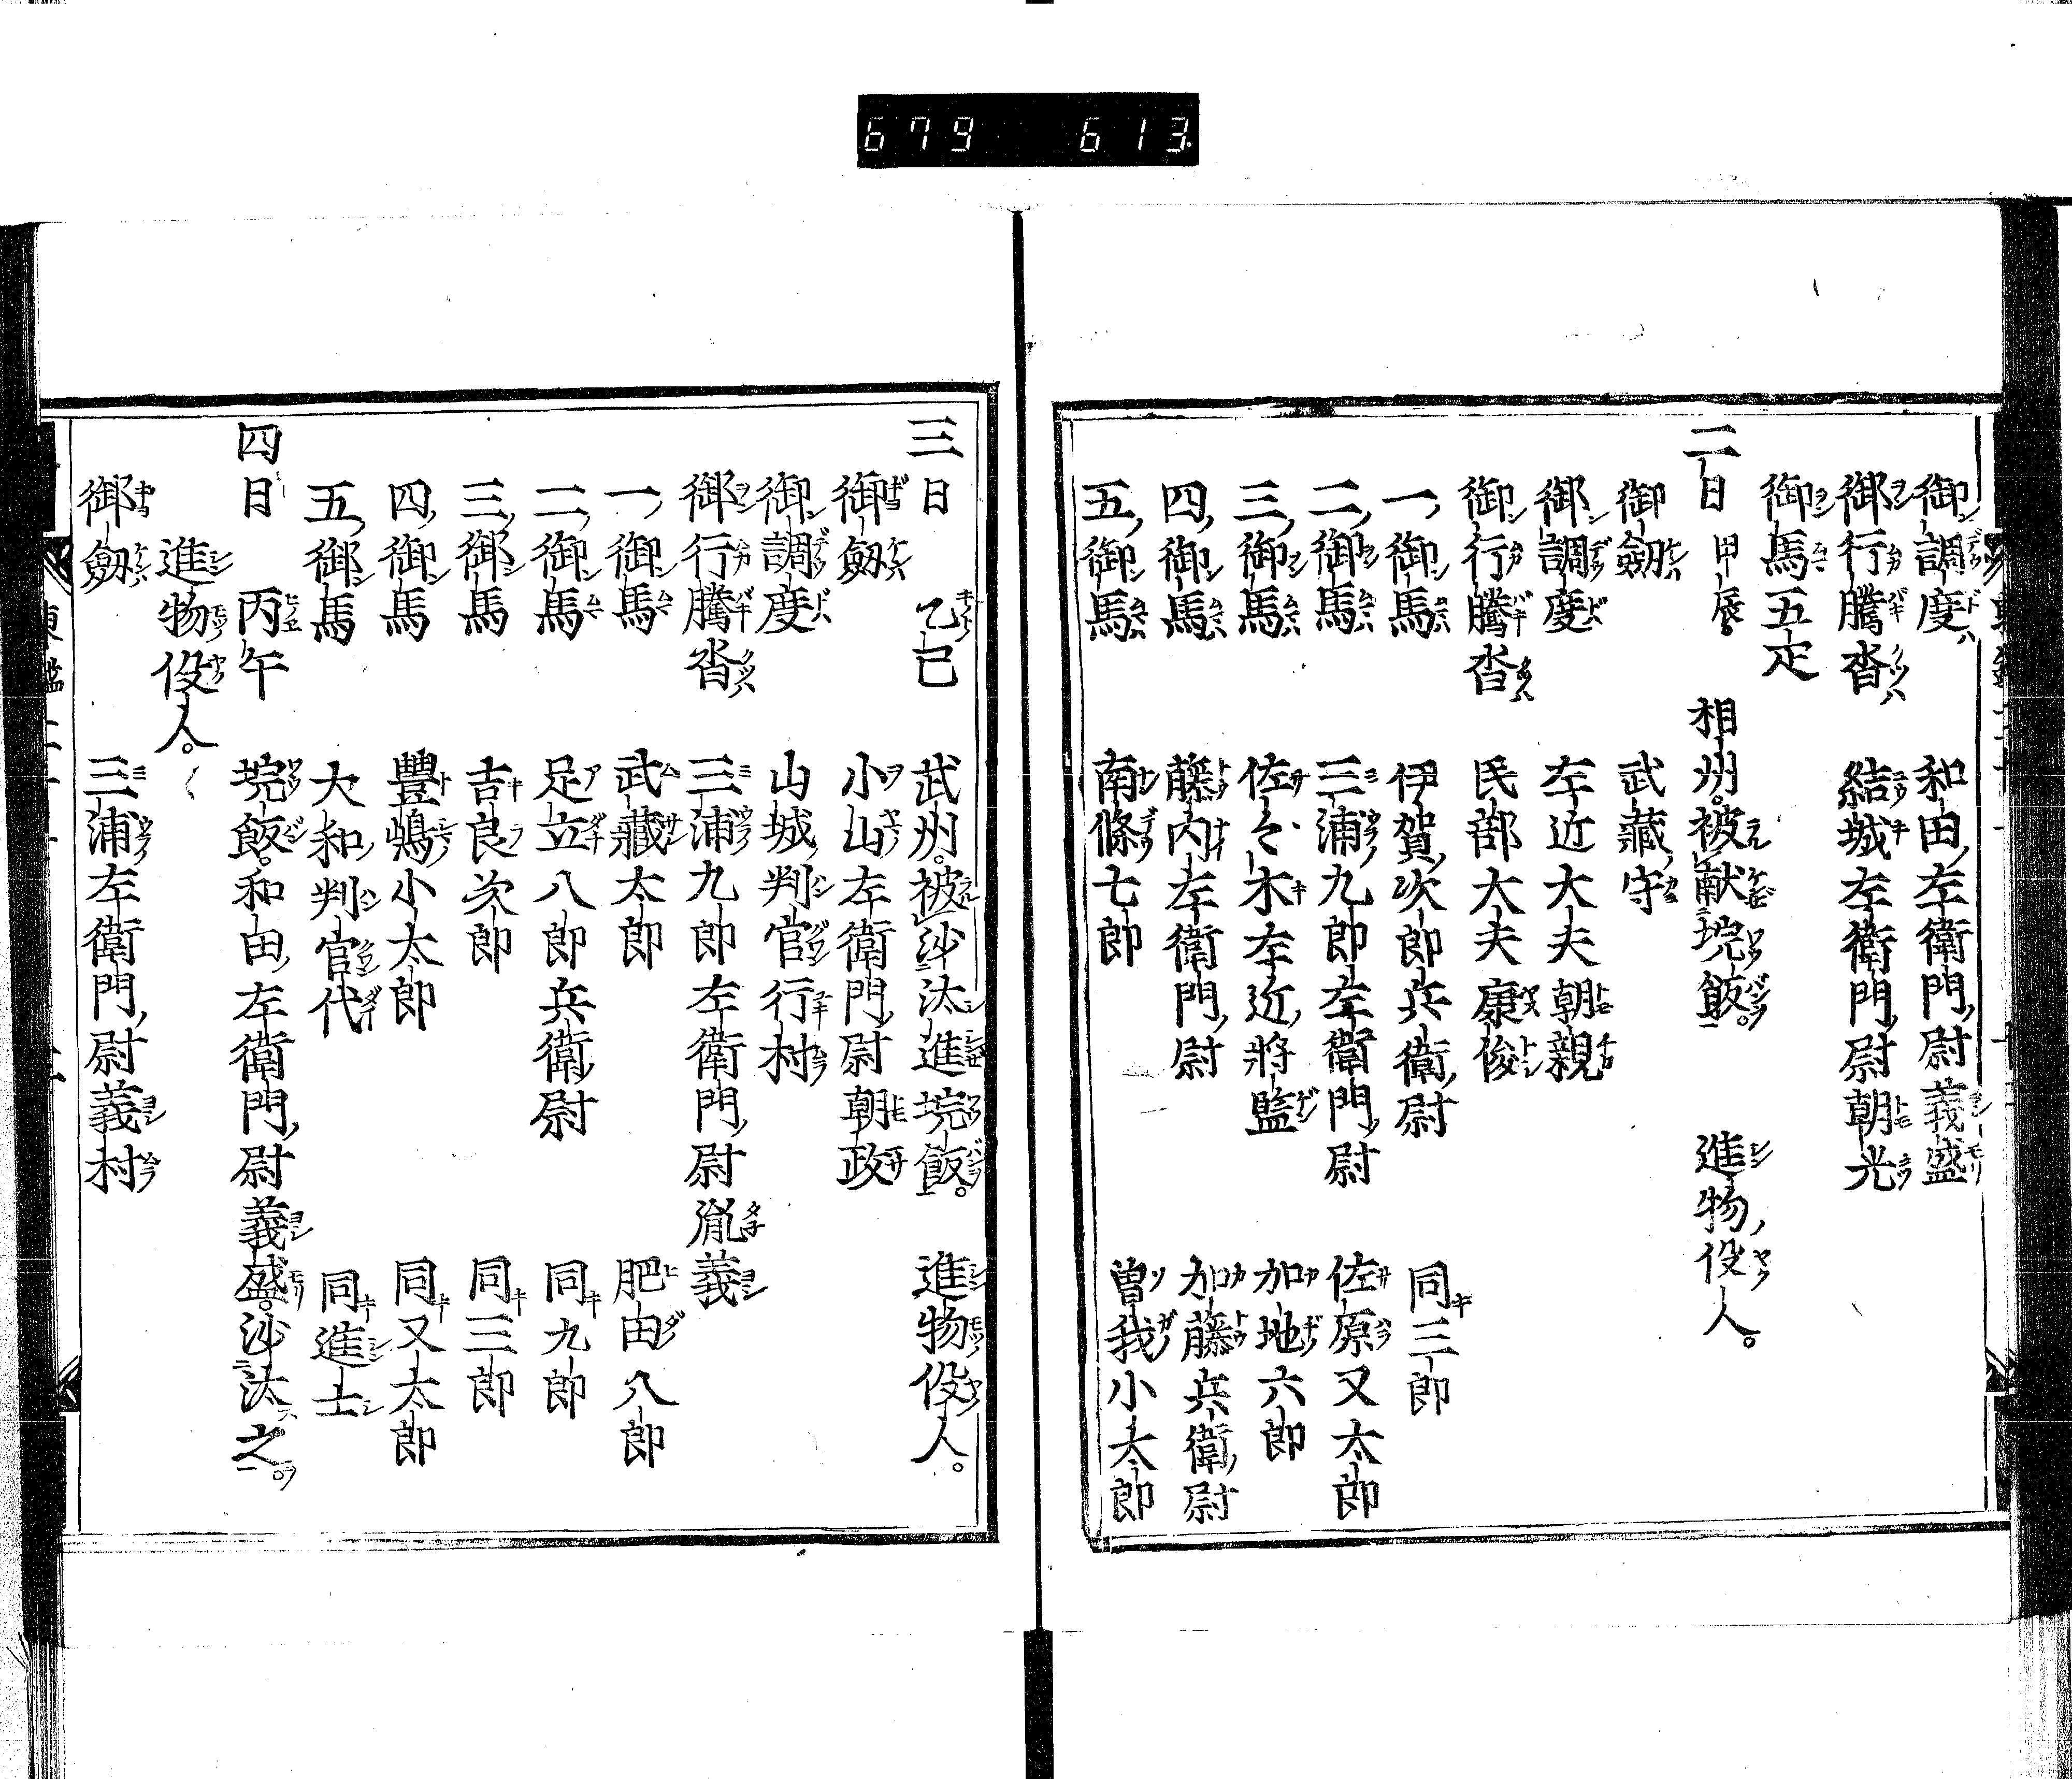 679 613
御調度 和田左衛門尉義盛
御行騰沓 結城左衛門尉朝光
御馬五疋
二日 甲辰 相州被献埦飯 進物役人
御劔 武藏守
御調度 左近大夫朝親
御行騰沓 民部大夫康俊
一御馬 伊賀次郎兵衛尉 同三郎
二御馬 三浦九郎左衛門尉 佐原又太郎
三御馬 佐々木左近將監 加地六郎
四御馬 藤内左衛門尉 加藤兵衛尉
五御馬 南條七郎 曽我小太郎
三日 乙巳 武州被沙汰進埦飯 進物役人
御劔 小山左衛門尉朝政
御調度 山城判官行村
御行騰沓 三浦九郎左衛門尉胤義
一御馬 武藏太郎 肥田八郎
二御馬 足立八郎兵衛尉 同九郎
三御馬 吉良次郎 同三郎
四御馬 豐嶋小太郎 同又太郎
五御馬 大和判官代 同進士
四日 丙午 埦飯和田左衛門尉義盛沙汰之
進物役人
御劔 三浦左衛門尉義村